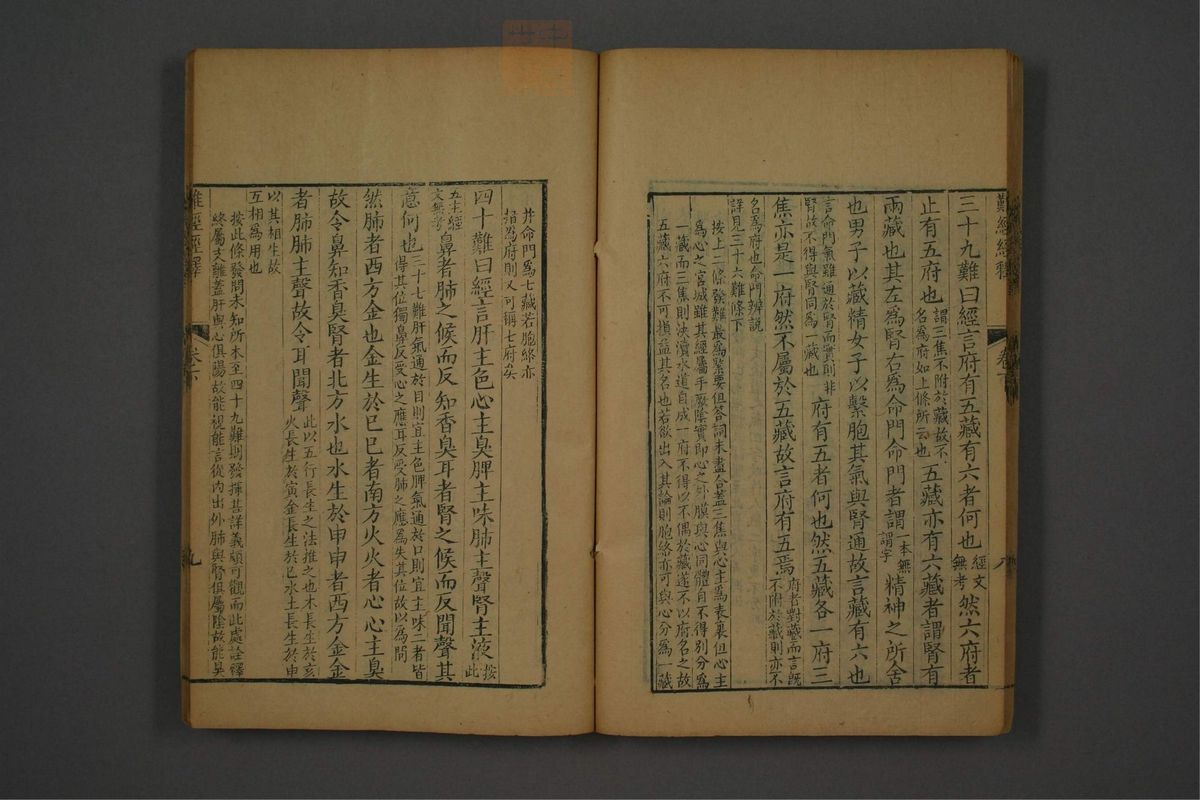 難經經釋 卷下 八
三十九難曰經言府有五藏有六者何也經文無考然六府者
止有五府也謂三焦不附於藏故不名爲府如上條所云也五藏亦有六藏者謂腎有
兩藏也其左爲腎右爲命門命門者謂一本無謂字精神之所舍
也男子以藏精女子以繫胞其氣與腎通故言藏有六也
言命門氣雖通於腎而實則非腎故不得與腎同爲一藏也府有五者何也然五藏各一府三
焦亦是一府然不屬於五藏故言府有五焉府者對藏而言旣不附於藏則亦不
名爲府也命門辨說詳見三十六難條下
按上二條發難最爲緊要但答詞未盡合蓋三焦與心主爲表裏但心主
爲心之宮城雖其經屬手厥陰實即心之外膜與心同體自不得別分爲
一藏而三焦則決瀆水道自成一府不得以不偶於藏遂不以府名之故
五藏六府不可損益其名也若欲出入其論則胞絡亦可與心分爲一藏
并命門爲七藏若胞絡亦
指爲府則又可稱七府矣
四十難曰經言肝主色心主臭脾主味肺主聲腎主液按此
五主經文無考鼻者肺之候而反知香臭耳者腎之候而反聞聲其
意何也三十七難肝氣通於目則宜主色脾氣通於口則宜主味二者皆得其位獨鼻反受心之應耳反受肺之應爲失其位故以爲問
然肺者西方金也金生於巳巳者南方火火者心心主臭
故令鼻知香臭腎者北方水也水生於申申者西方金金
者肺肺主聲故令耳聞聲此以五行長生之法推之也木長生於亥火長生於寅金長生於巳水土長生於申
以其相生故互相爲用也
按此條發問未知所本至四十九難則發揮甚詳義頗可觀而此處詮釋
終屬支離蓋肝與心俱屬陽故能視能言從內出外肺與腎俱屬陰故能臭
難經經釋 卷下 九